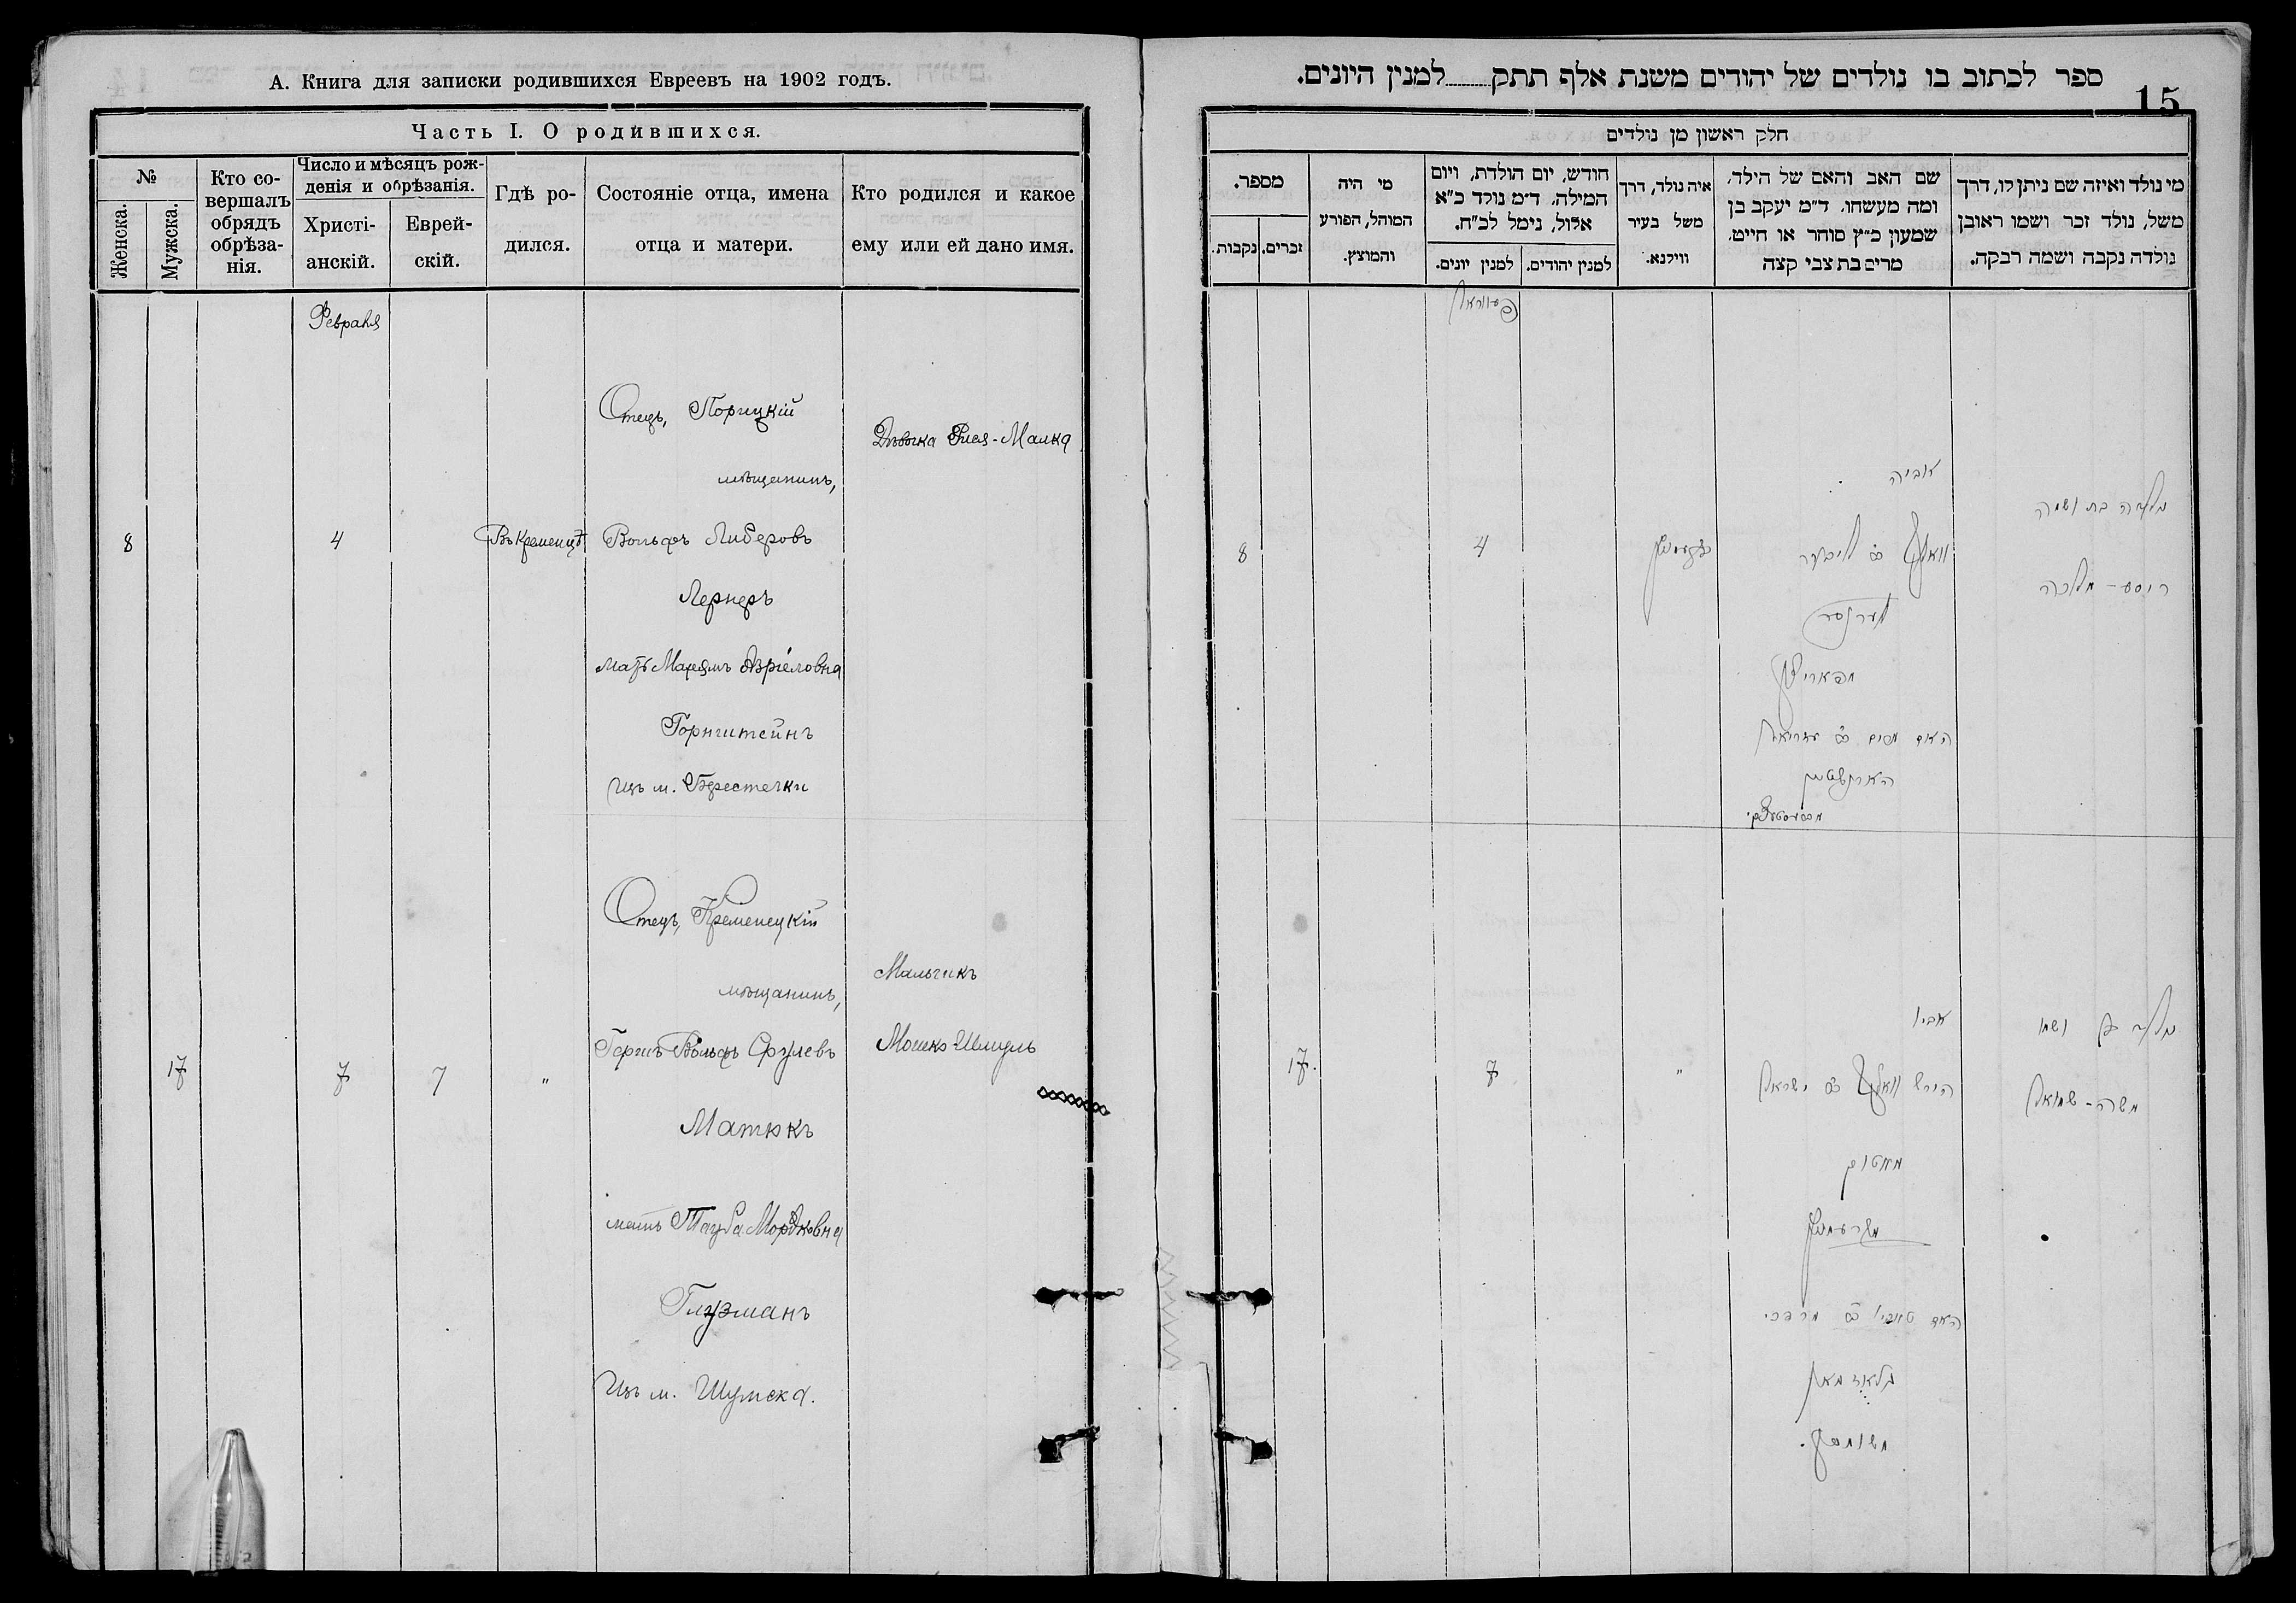 А. Книга для записки родившихся Евреевъ на 1902 годъ.
Часть I. О родившихся.
№
Женска.
Мужска.
Кто со-
вершалъ
обрядъ
обрѣза-
нія.
Число и мѣсяцъ рож-
денія и обрѣзанія.
Христі-
анскій.
Еврей-
скій.
Гдѣ ро-
дился.
Состояніе отца, имена
отца и матери.
Кто родился и какое
ему или ей дано имя.
Февраля
Отецъ, Порицкій
мѣщанинъ,
8 4 Въ Кременцѣ Вольфъ Либеровъ
Лернеръ
мать Маріямъ Азріеловна
Горнштейнъ
Изъ м. Берестечки
Дѣвочка -Малка
Отецъ, Кременецкій
мѣщанинъ,
17 7 7 " Гершъ-Вольфъ Срулевъ
Матюкъ
мать Тауба Мордковна
Глузманъ
Изъ м. Шумска.
Мальчикъ
Мошко-Шмуль
ספר לכתוב בו נולדים של יהודים משנת אלף תתק למנין היונים.
15
חלק ראשון מן נולדים
מי נולד ואיזה שם ניתן לו, דרך
משל, נולד זכר ושמו ראובן
נולדה נקבה ושמה רבקה.
שם האב והאם של הילד,
ומה מעשהו. ד״מ יעקב בן
שמעון כ״ץ סוחר או חייט,
מרים בת צבי קצה
איה נולד, דרך
משל בעיר
ווילנא.
חודש, יום הולדת, ויום
המילה, ד״מ נולד כ״א
אלול, נימל לכ״ח.
למנין יהודים.
למנין יונים.
מי היה
המוהל, הפורע
והמוצץ.
מספר.
זכרים.
נקבות.
אביה
8 4
וואלף ליבער
לערנער
האם מרים עזריאל
הארנשטיין
ושמה
מלכה
אביו
17. 7 "
הירש וואלף ישראל
מאטוק
מקרעמניץ
האם מרדכי
גלאוזמאן
ושמו
משה-שמואל